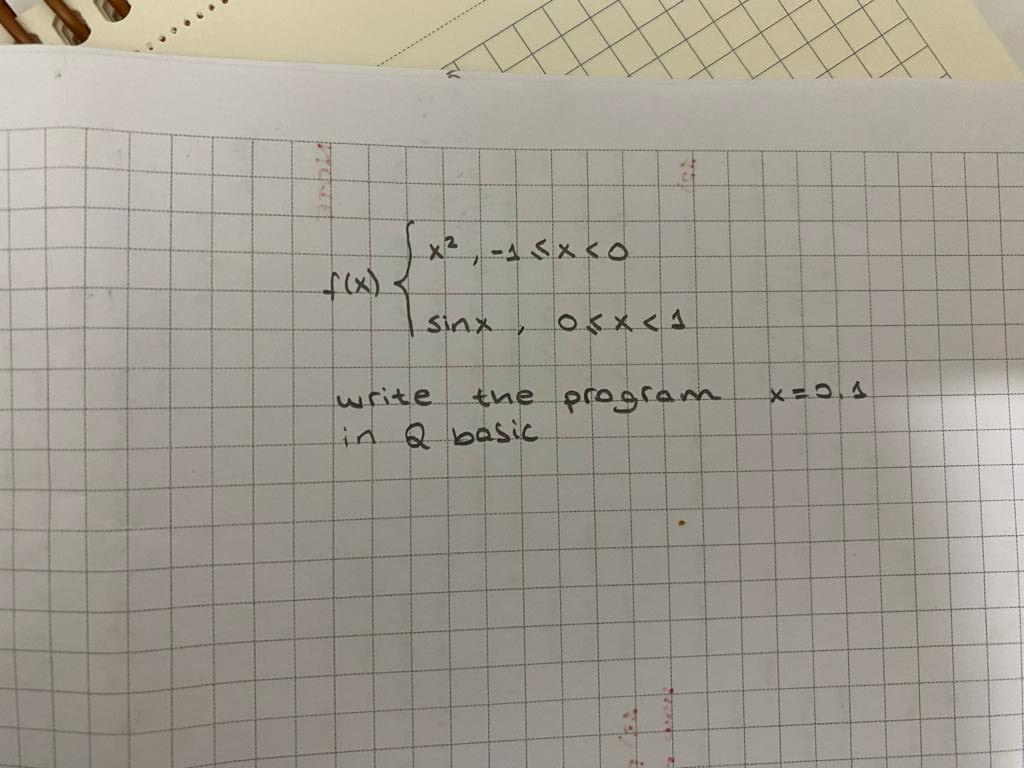 f(x) { x², -1 ≤ x < 0
sinx, 0 ≤ x < 1
write the program x=0.1
in Q basic